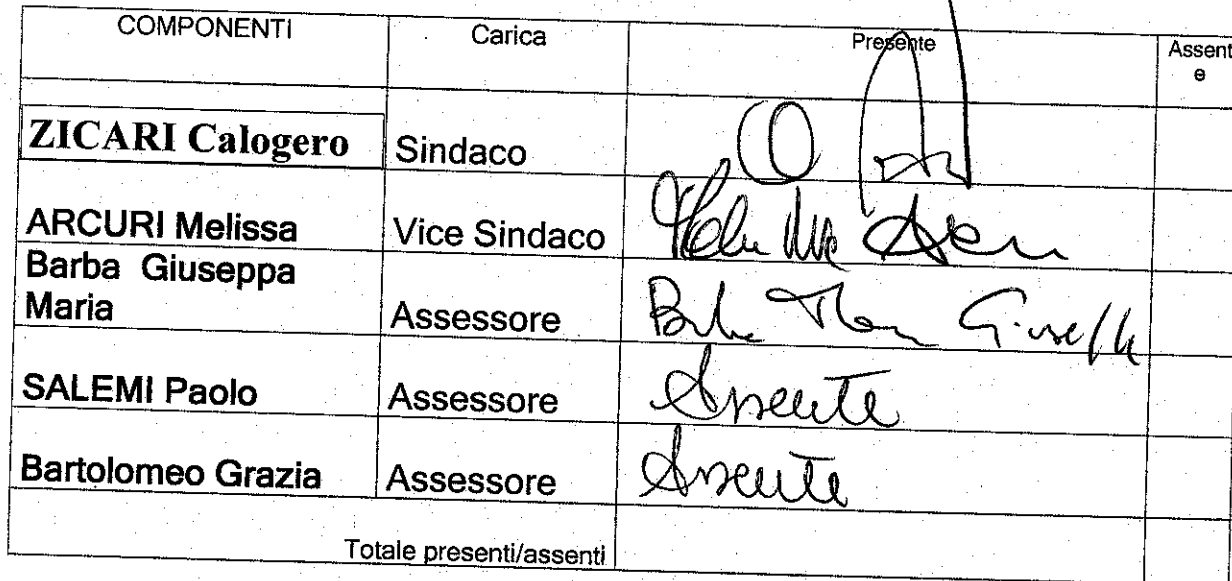 COMPONENTI Carica Presente Assent
e
ZICARI Calogero Sindaco
ARCURI Melissa Vice Sindaco
Barba Giuseppa
Maria Assessore Giuseppa
SALEMI Paolo Assessore Assente
Bartolomeo Grazia Assessore Assente
Totale presenti/assenti